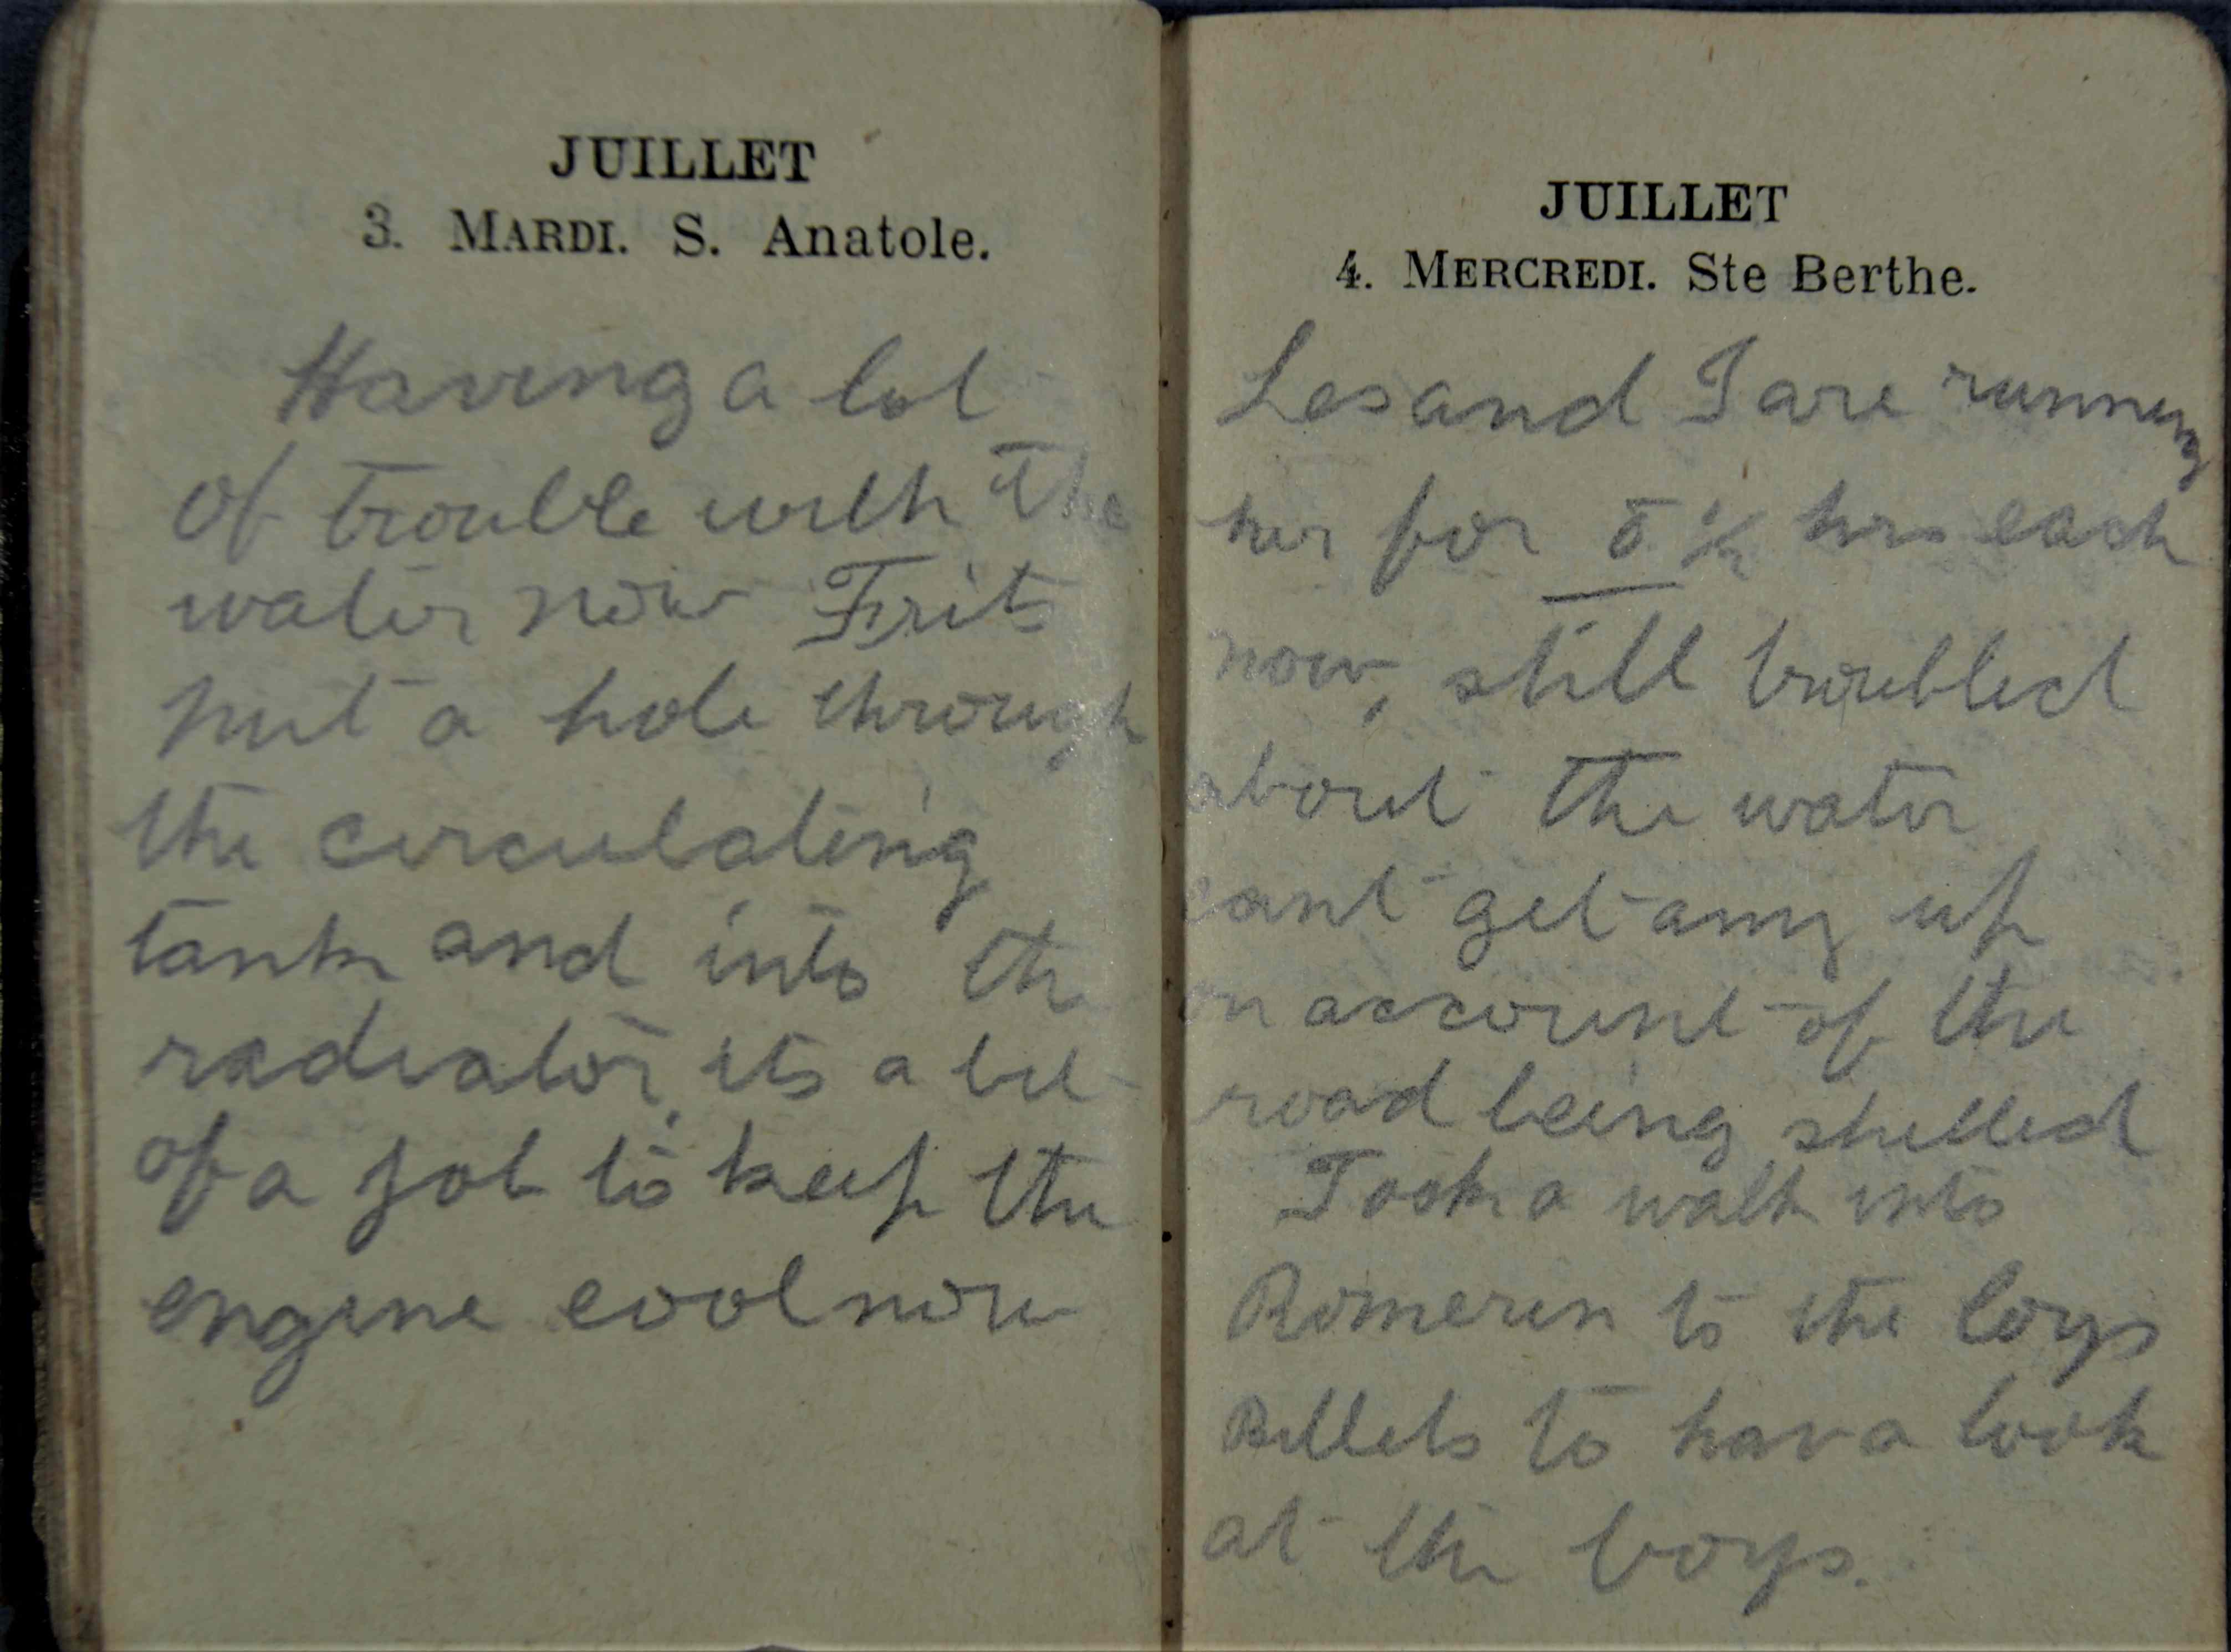 JUILLET
3. MARDI. S. Anatole.
Having a lot
of trouble with the
water now Fritz
put a hole through
the circulating
tank and into the
radiator, its a bit
of a job to keep the
engine cool now
JUILLET
4. MERCREDI. Ste Berthe.
Les and I are running
her for 5 ½ hrs each
now, still troubled
about the water
cant get any up
on account of the
road being shelled
Took a walk into
Romerin to the boys
Billets to hav a look
at the boys.